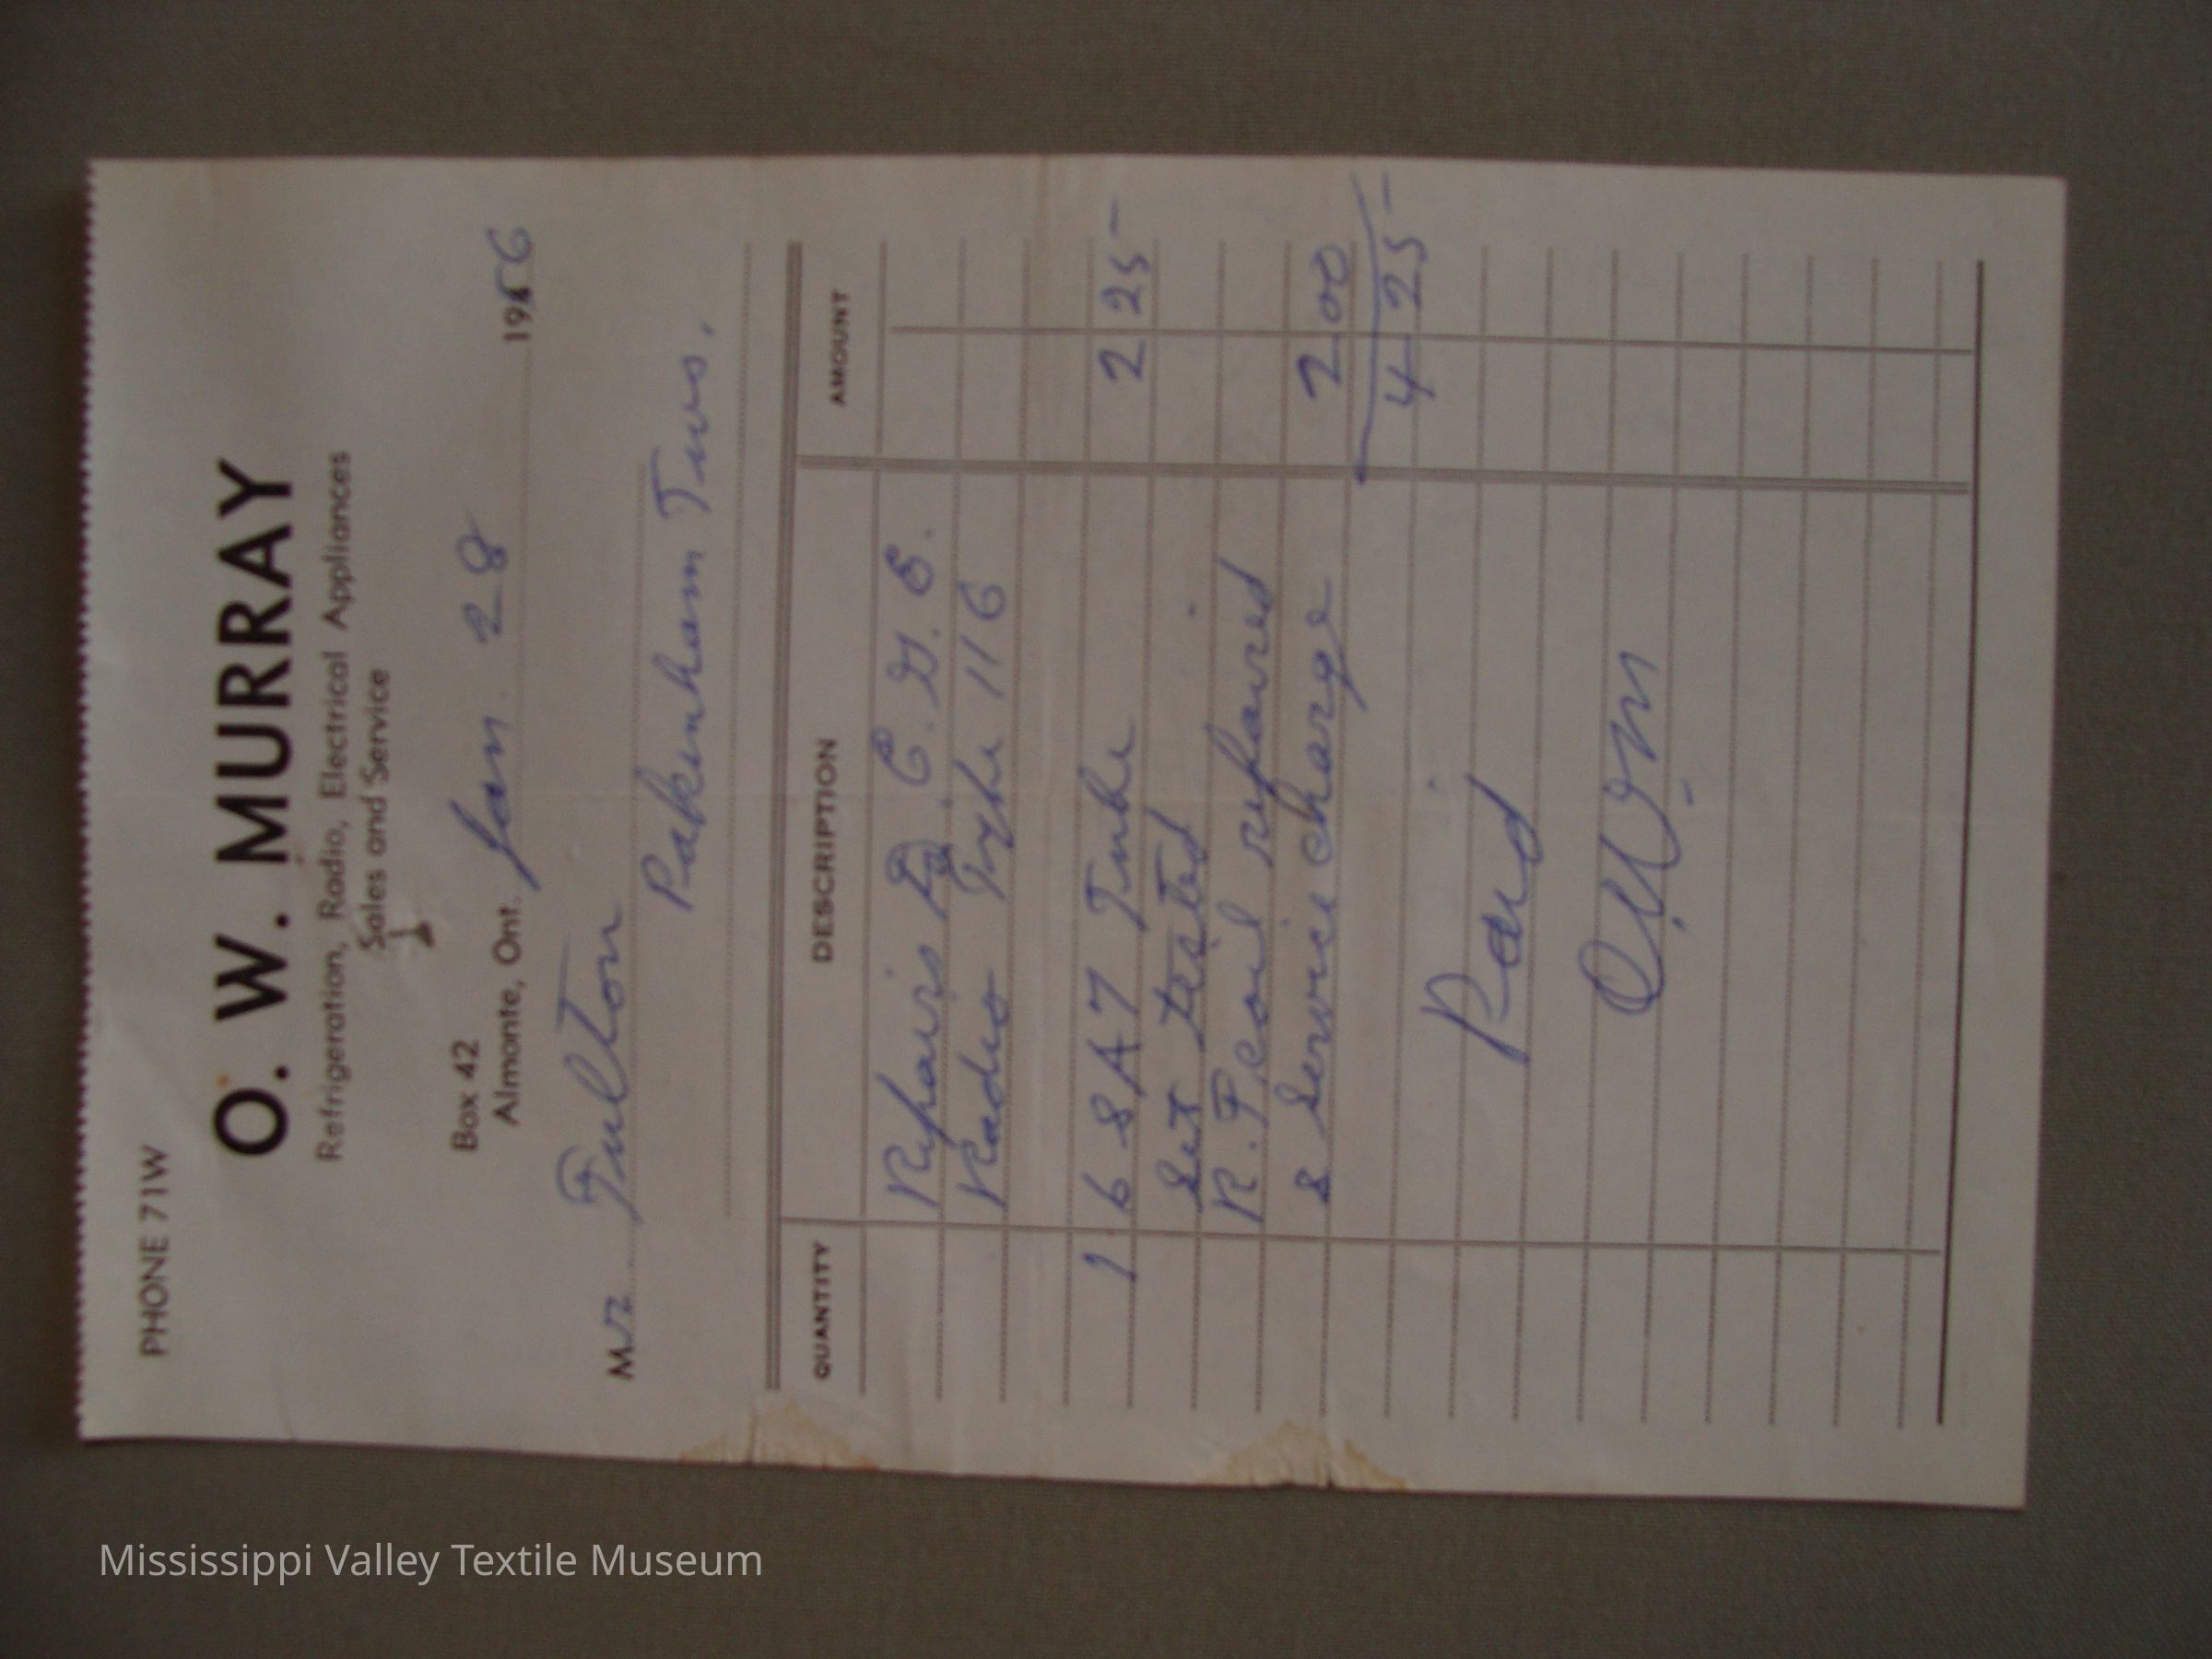 PHONE 71W
O. W. MURRAY
Refrigeration, Radio, Electrical Appliances
Sales and Service
Box 42
Almonte, Ont. Jan. 28 1956
Mr. Fulton
Pakenham Twp.
QUANTITY DESCRIPTION AMOUNT
Repairs to C. G. E.
Radio Type 116
1 6SA7 Tube 2 25
Set tested
R.F. coil repaired
& Service charge 2 00
4 25
Paid
O.W.M
Mississippi Valley Textile Museum